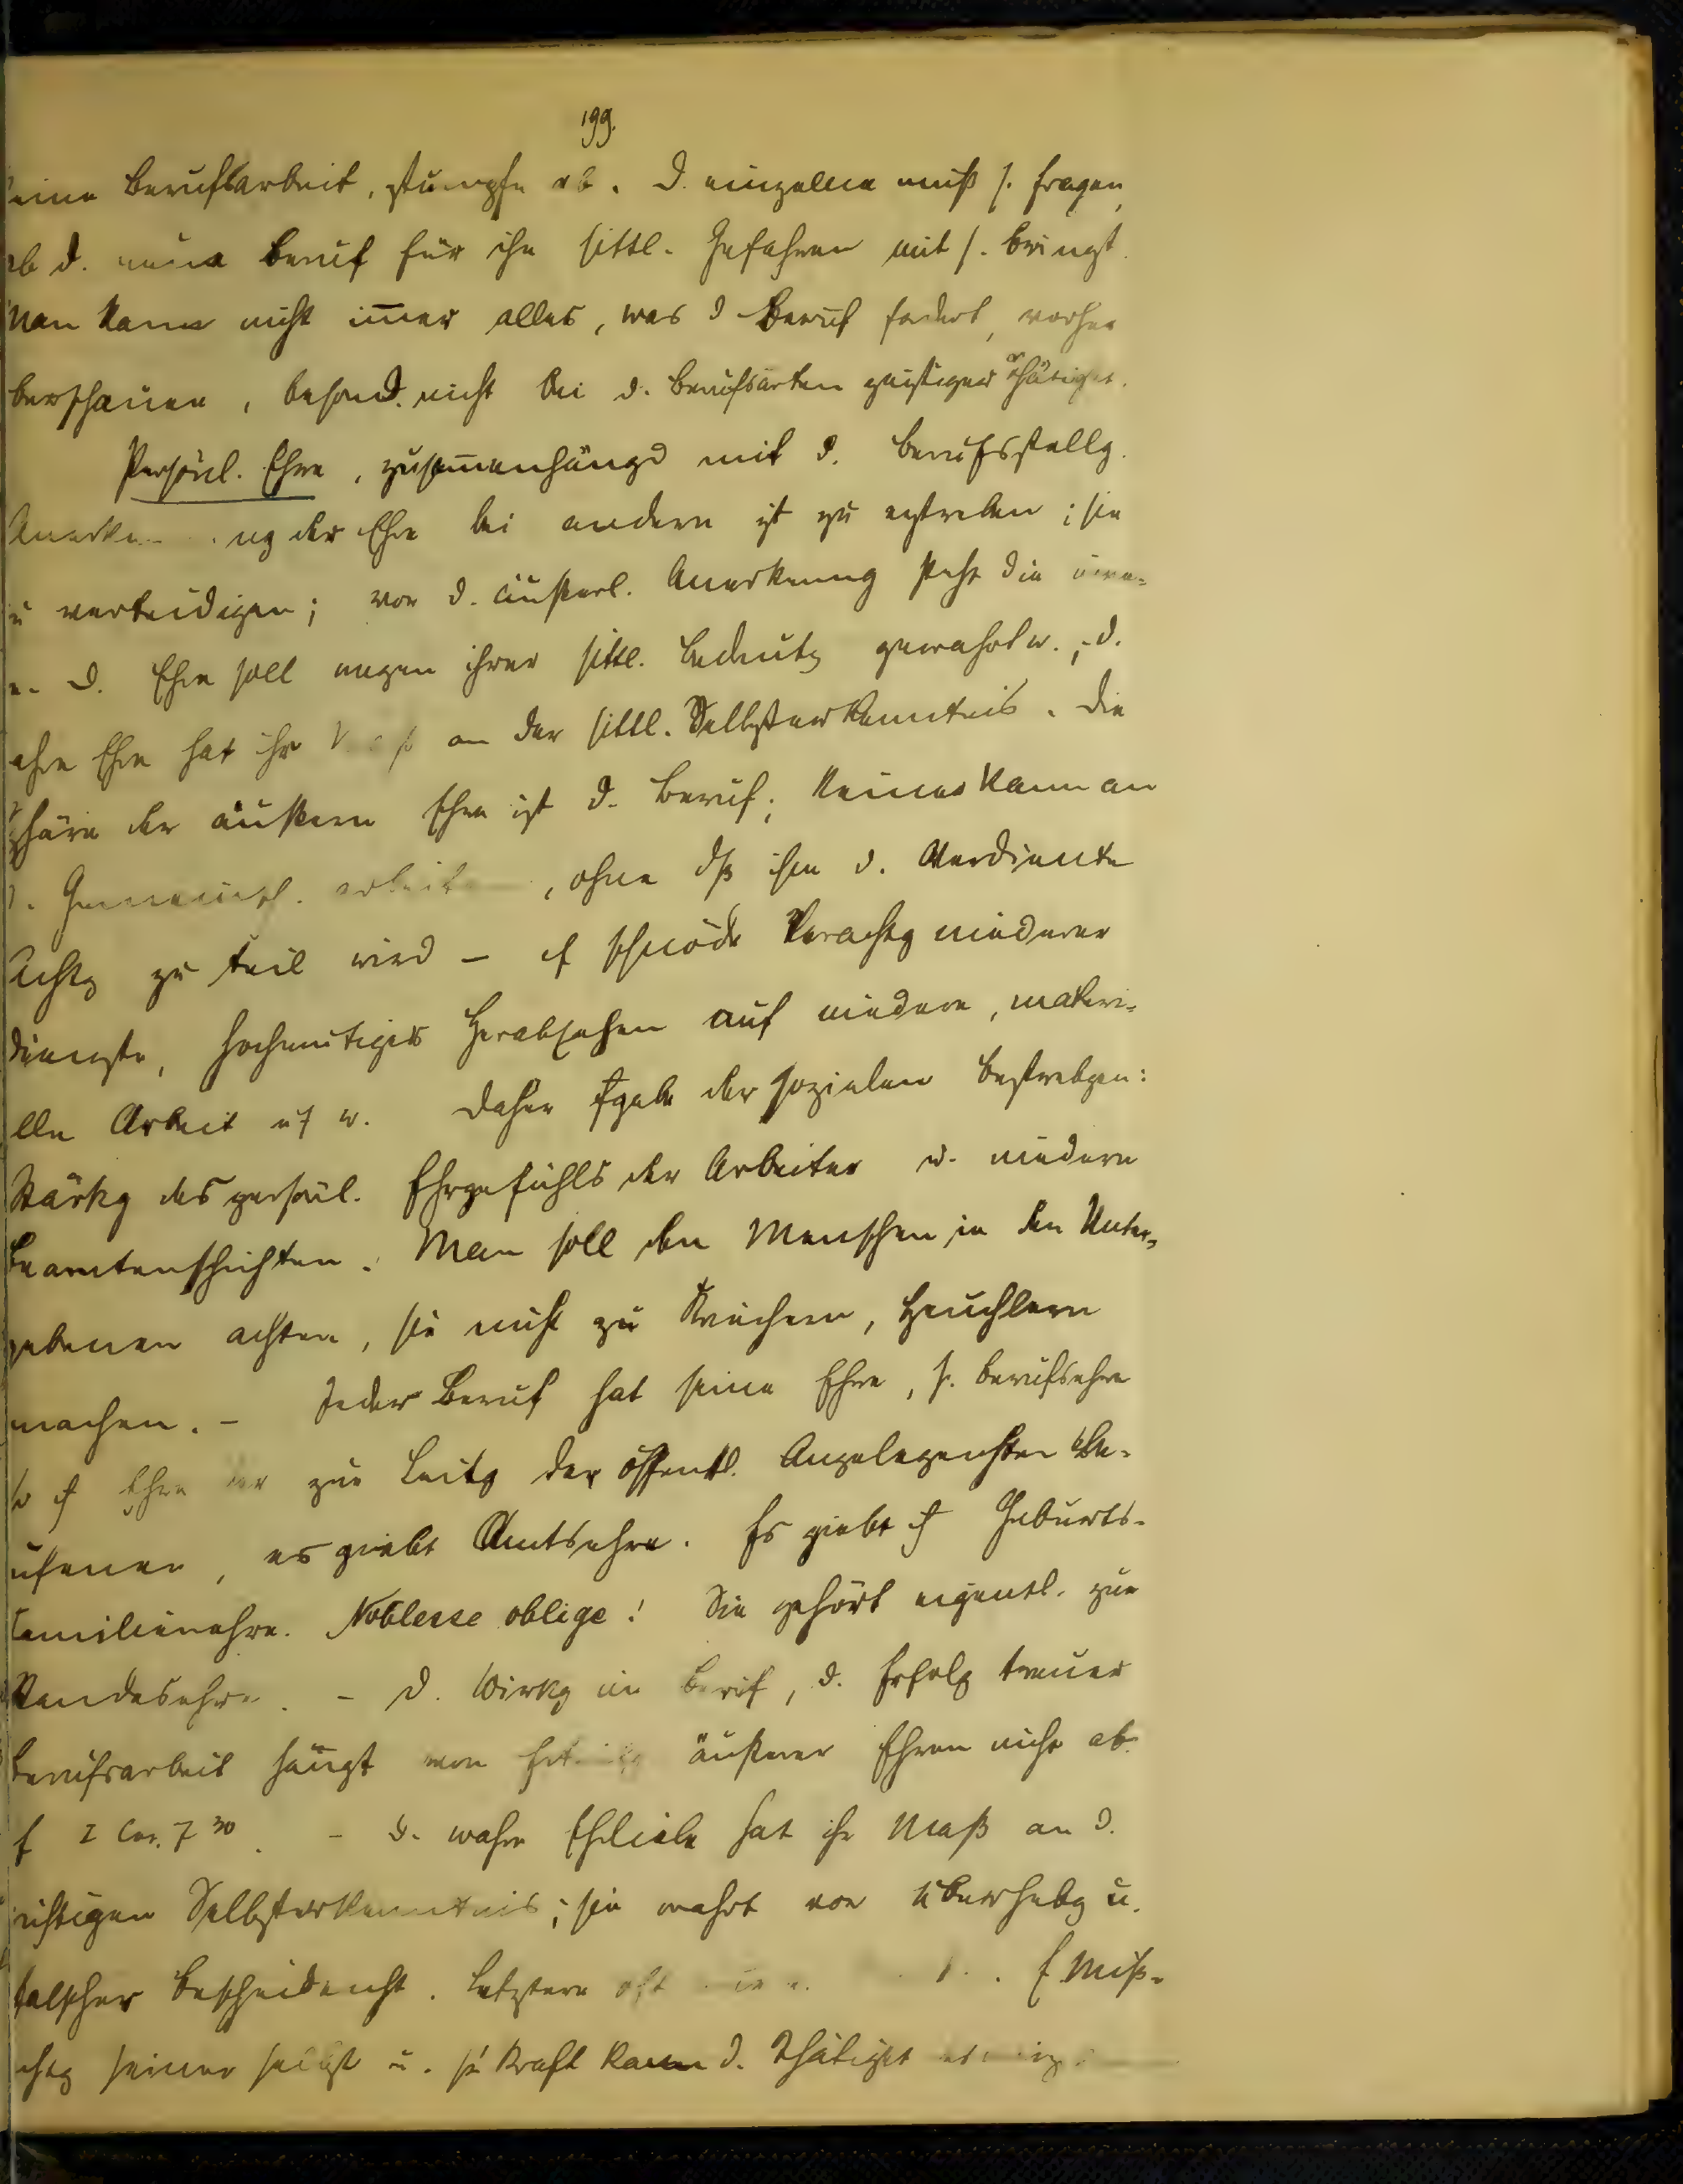 199.
eine Berufsarbeit, stumpfe ab. D. einzelne muß s. fragen,
ob d. neue Beruf für ihn sittl. Gefahren mit s. bringt.
Man kann nicht im̄er alles, was d Beruf fodert, vorher
berschauen, besond. nicht bei d. Berufsarten geistiger Thätigkt.
Persönl. Ehre, zusam̄enhängd mit d. Berufsstellg.
der Ehre bei andern ist zu erstreben; sie
u verteidigen; vor d. äußerl. Anerkennung steht die
D. Ehre soll wegen ihrer sittl. Bedeutg gewahrt w., d.
ahre Ehre hat ihr Maß an der sittl. Selbsterkenntnis. Die
phäre der äußern Ehre ist d. Beruf; Keiner kann an
d. Gemeinsch. arbeiten, ohne dß ihm d. verdiente
Achtg zu teil wird – schnöde Verachtg niederer
Dienste, hochmütiges Herabsehen auf niedere, materi-
elle Arbeit usw. Daher der sozialen Bestrebgen:
Stärkg des persönl. Ehrgefühls der Arbeiter u. niedern
Beamtenschichten. Man soll den Menschen in den Unter-
gebenen achten, sie nicht zu Kriechern, Heuchlern
machen. – Jeder Beruf hat seine Ehre, s. Berufsehre
Ehre der zur Leitg der öffentl. Angelegenhten Be-
ufenen, es giebt Amtsehre. Es giebt Geburts-
Familienehre. Noblesse oblige! Sie gehört eigentl. zur
Standesehre. – D. Wirkg im Beruf, d. Erfolg treuer
Berufsarbeit hängt von äußerer Ehren nicht ab.
f I Cor. 7 30. – D. wahre Ehrliebe hat ihr Maß an d.
richtigen Selbsterkenntnis; sie wahrt vor Überhebg u.
falscher Bescheidenht. Letztere oft Miß-
chtg seiner selbst u. Kraft kann d. Thätigkt